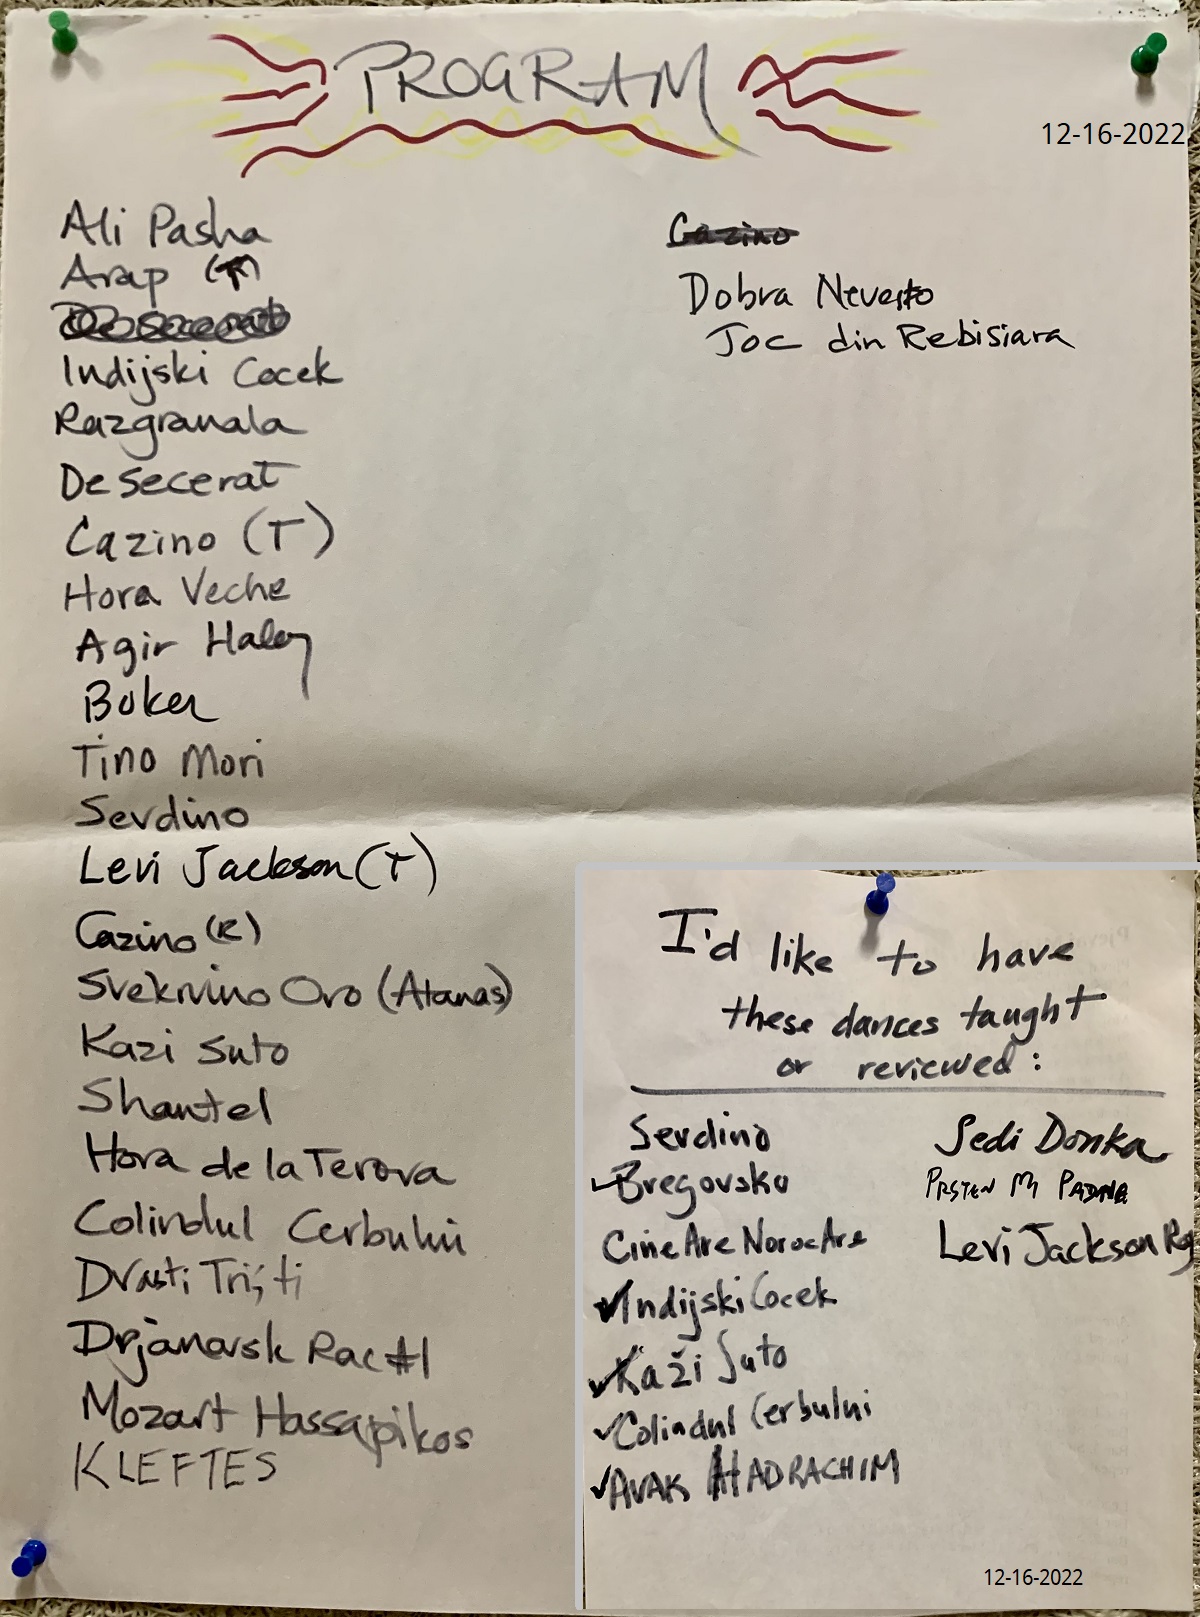 PROGRAM
12-16-2022
Ali Pasha
Arap
Desecerat
Indijski Cocek
Razgranala
Desecerat
Cazino (T)
Hora Veche
Agir Halay
Boker
Tino Mori
Sevdino
Levi Jackson (T)
Cazino (R)
Svekrvino Oro (Atanas)
Kazi Suto
Shantel
Hora de la Terova
Colindul Cerbului
Drasti Tristi
Drjanovsk Rac #1
Mozart Hassapikos
KLEFTES
Cazino
Dobra Nevesto
Joc din Rebisiara
I'd like to have
these dances taught
or reviewed:
Serdino
Bregovsko
Cine Are Noroc Are
Indijski Cocek
Kaži Suto
Colindul Cerbului
AVAK HADRACHIM
Sedi Donka
PRSTEN MI PADNA
Levi Jackson Rg
12-16-2022